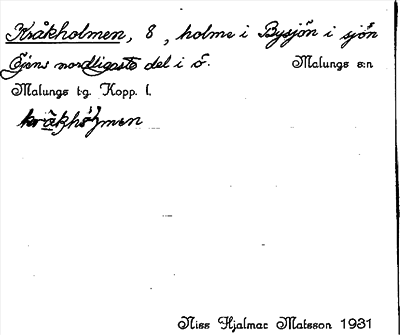 Kråkholmen, 8, holme i Bysjön i sjön
Öjens nordligaste del i ö. Malungs s:n
Malungs tg. Kopp. l.
Niss Hjalmar Matsson 1931